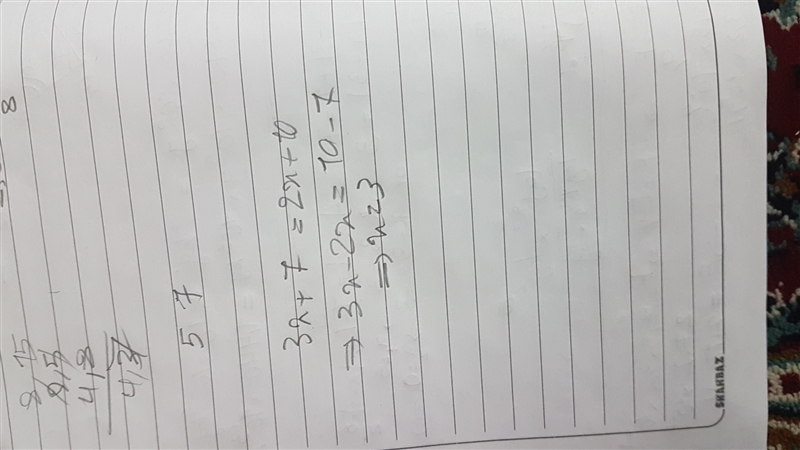 8
8,15
8,5
4,8
4,3
5 7
3x + 7 = 2x + 10
⇒ 3x - 2x = 10 - 7
⇒ x = 3
SHAHBAZ